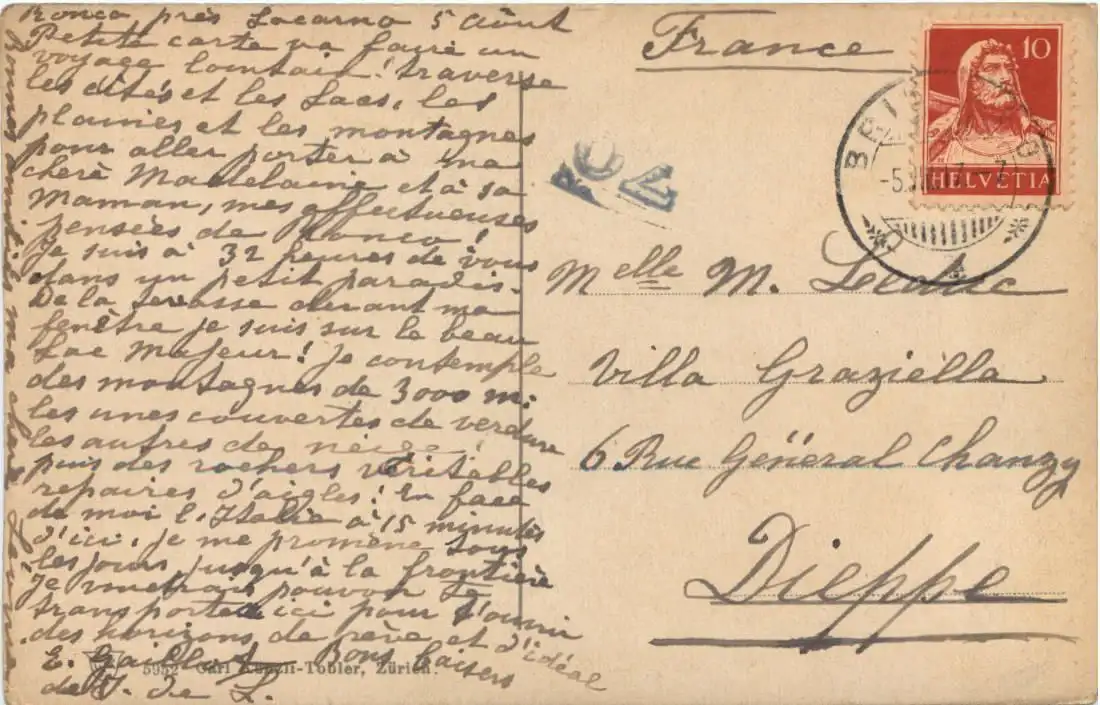 Ronco, près Locarno 5 Août
Petite carte va faire un
voyage lointain! traverse
les cités et les Lacs, les
plaines et les montagnes
pour aller porter à ma
chère Madelaine et à sa
Maman, mes affectueuses
pensées de Ronco!
Je suis à 32 heures de vous
dans un petit paradis.
De la terrasse devant ma
fenêtre je suis sur le beau
Lac Majeur! Je contemple
des montagnes de 3000 m:
les unes couvertes de verdure
les autres de neige!
puis des rochers véritables
repaires d'aigles! En face
de moi l'Italie à 15 minutes
d'ici, je me promène tous
les jours, jusqu'à la frontière
Je voudrais pouvoir te
transporter ici pour t'ouvrir
des horizons de rêve et d'idéal
E. Bons baisers
de J. de L.
Bonne ma chère
5952 Carl Künzli-Tobler, Zürich.
France
10
HELVETIA
BRI
-5.
Melle M. Leduc
Villa Graziella
6 Rue Général Chanzy
Dieppe